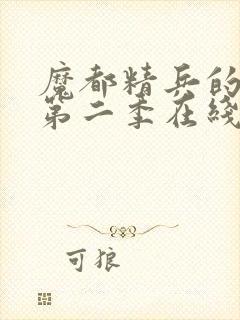 魔都精兵的
第二季在线
可狼